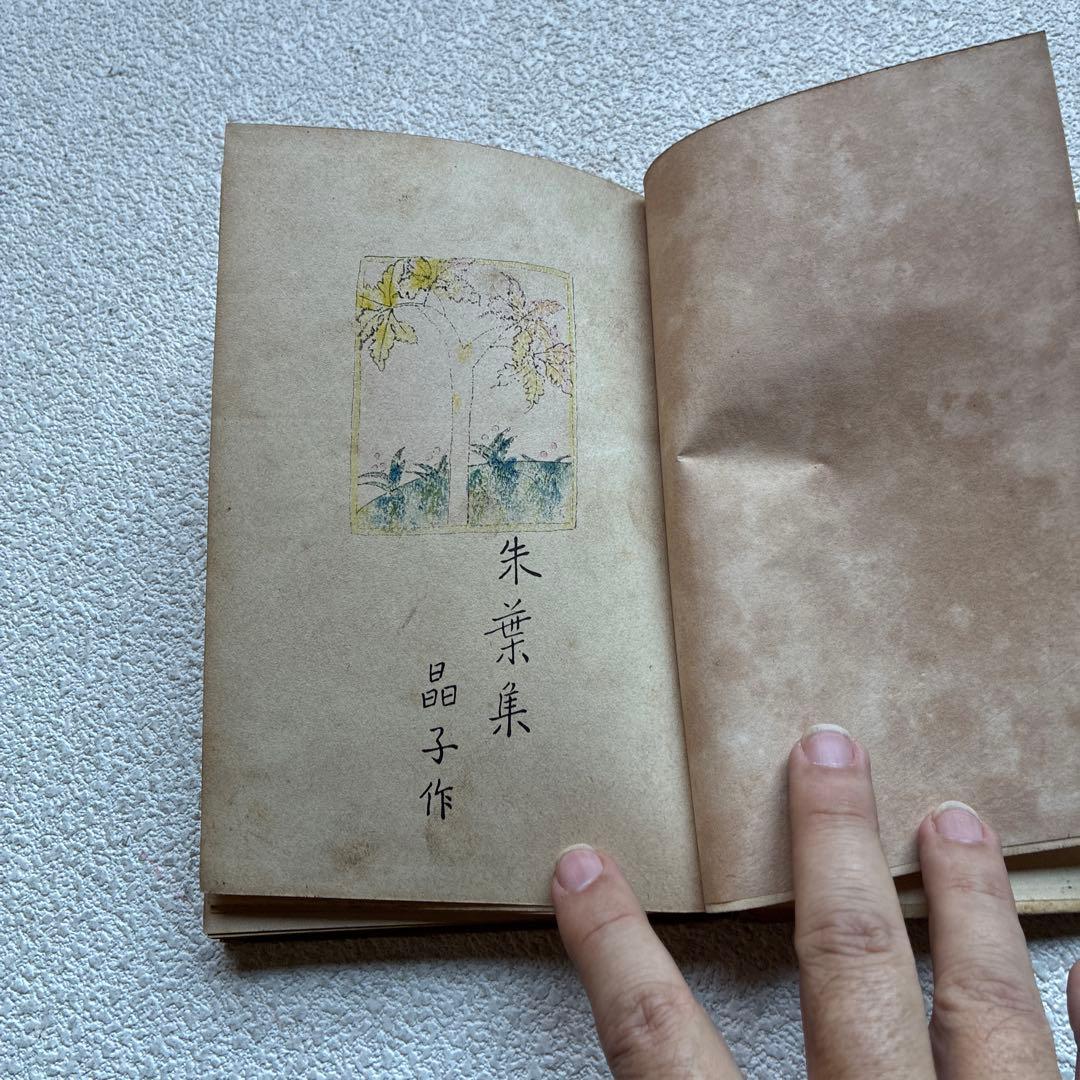 朱葉集
晶子作